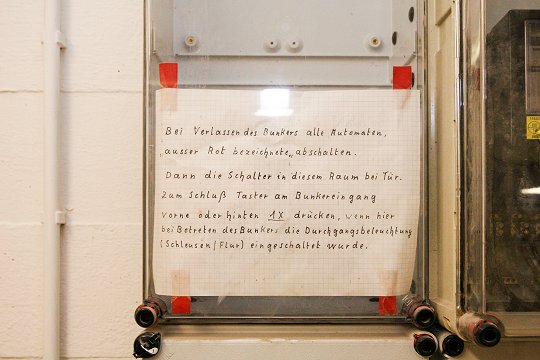 Bei Verlassen des Bunkers alle Automaten,
„ausser Rot bezeichnete„ abschalten.
Dann die Schalter in diesem Raum bei Tür.
Zum Schluß Taster am Bunkereingang
vorne oder hinten 1X drücken, wenn hier
bei Betreten des Bunkers die Durchgangsbeleuchtung
(Schleusen/Flur) eingeschaltet wurde.